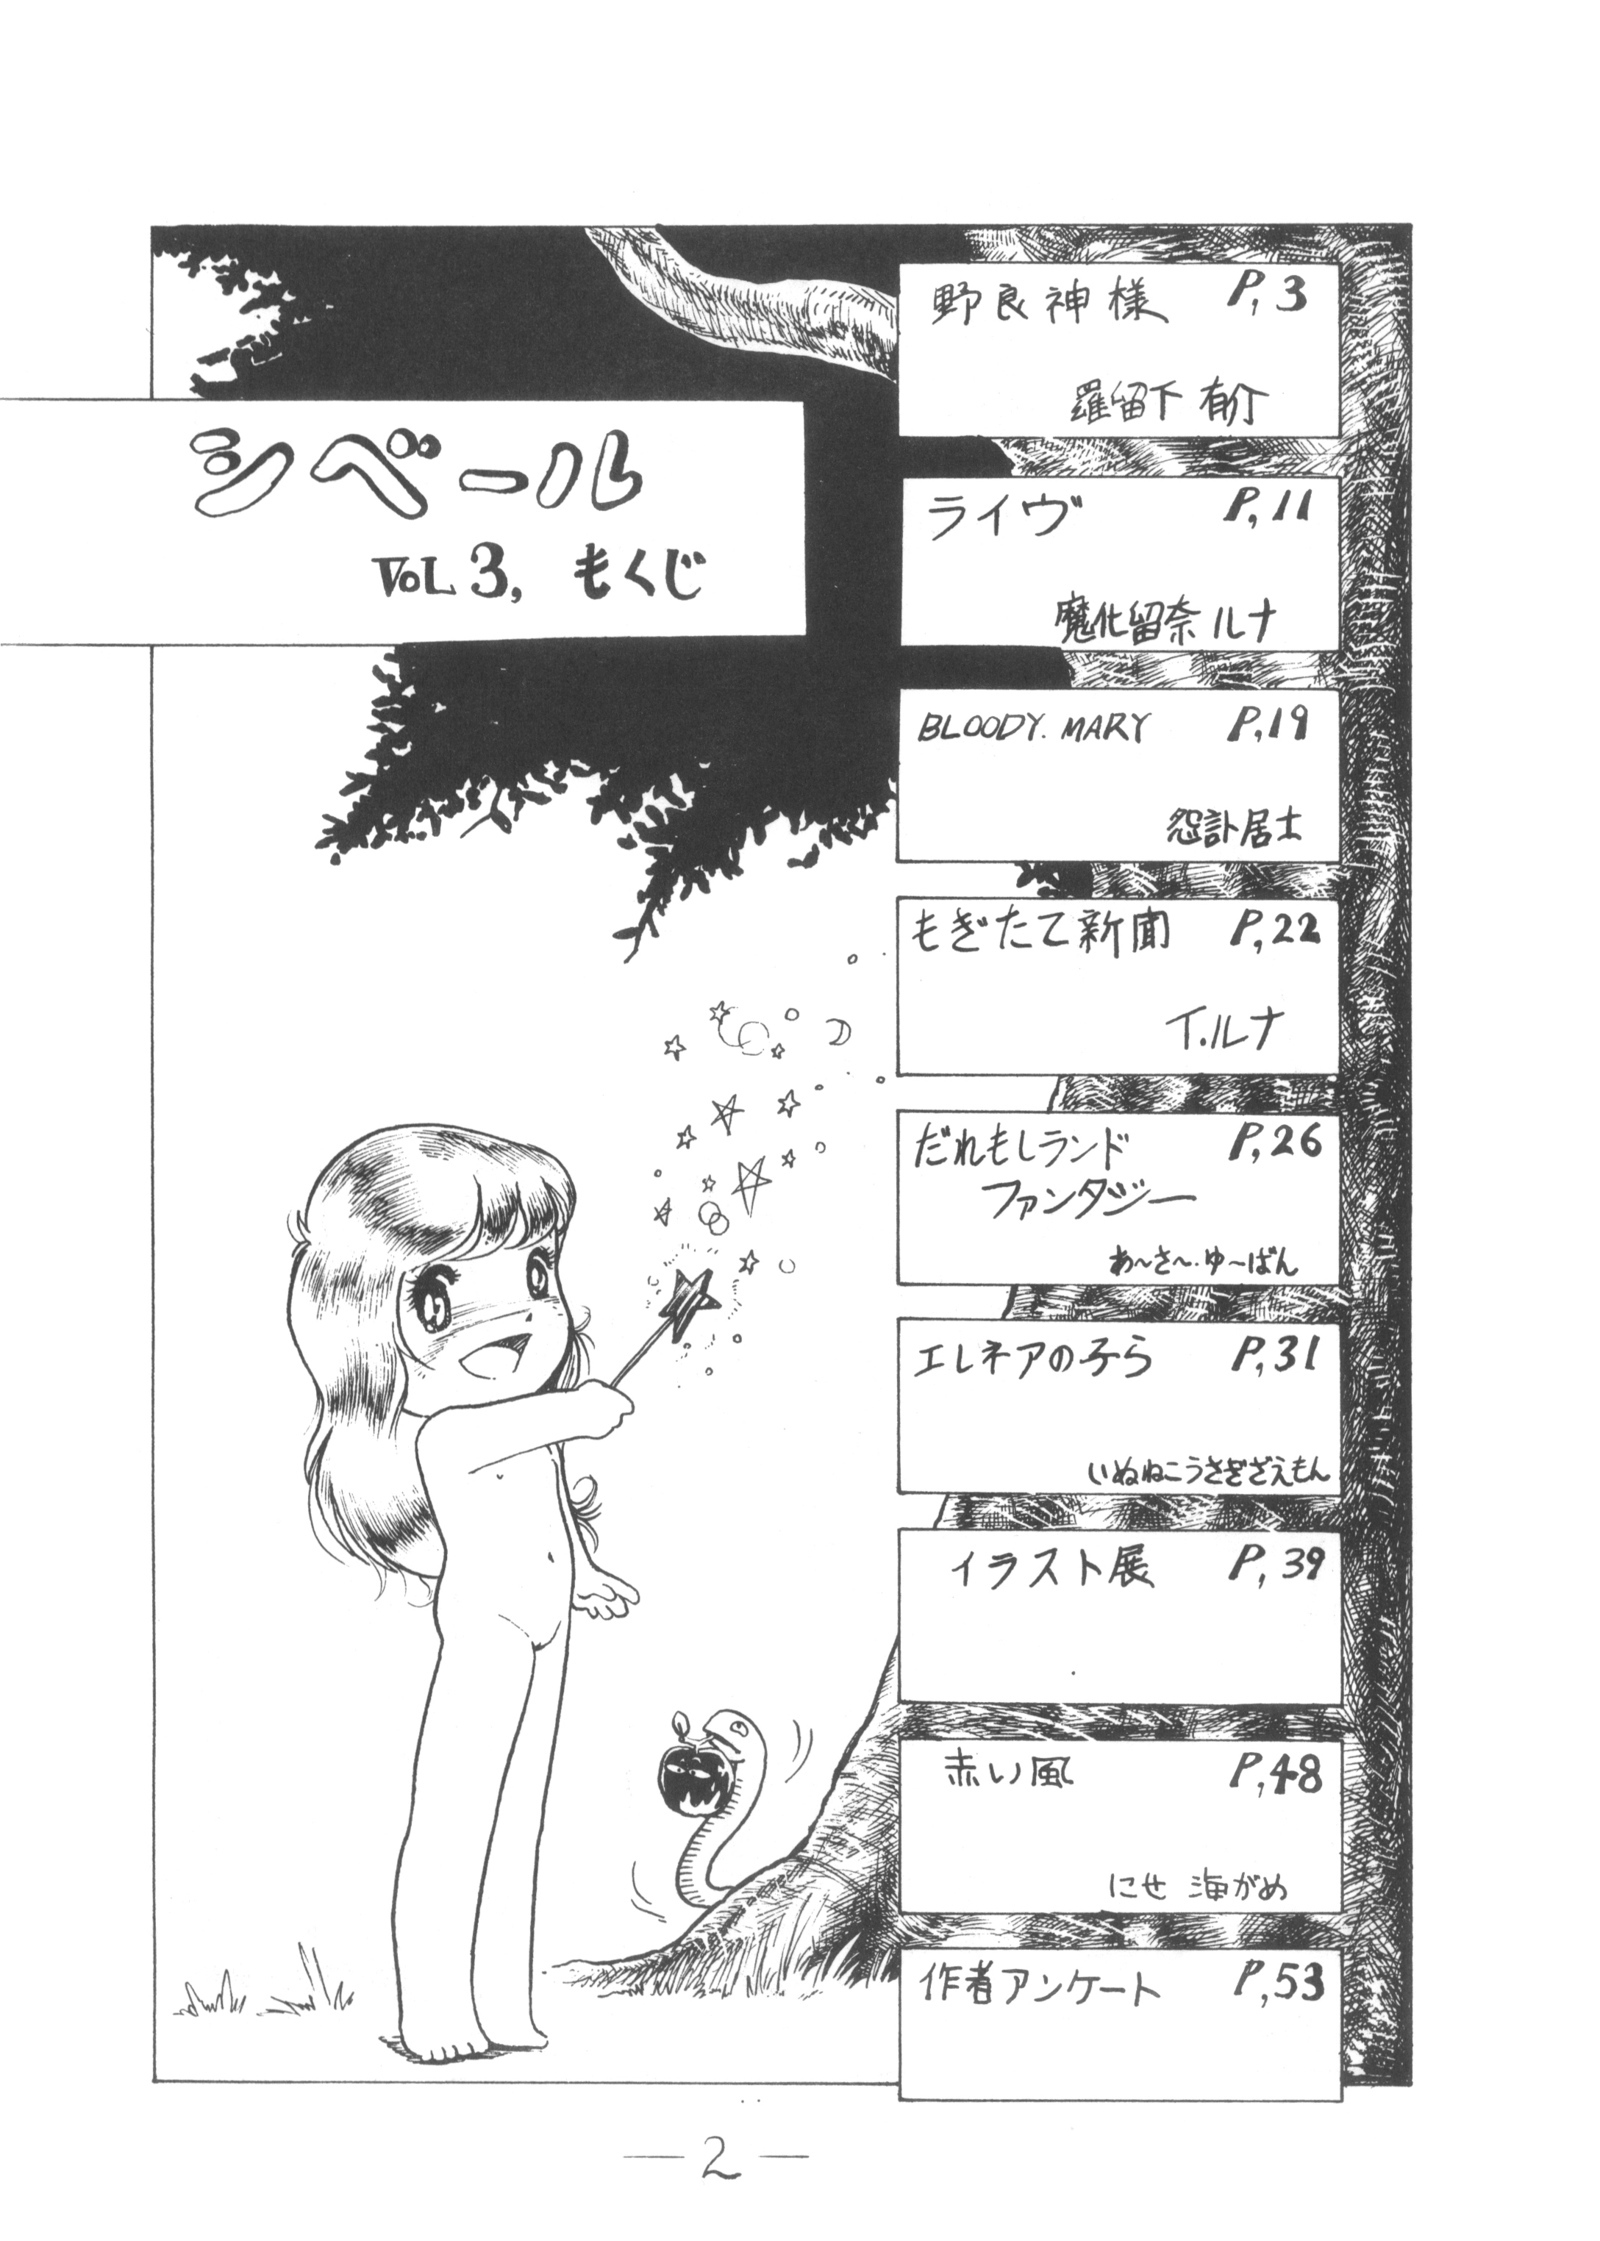 シベール
VOL 3, もくじ
野良神様 P,3
羅留下 有介
ライヴ P,11
魔化留奈 ルナ
BLOODY. MARY P,19
怨訃居士
もぎたて新聞 P,22
T.ルナ
だれもしランド P,26
ファンタジー
あ〜さ〜・ゆ〜ばん
エレネアの子ら P,31
いぬねこうさぎざえもん
イラスト展 P,39
赤い風 P,48
にせ 海がめ
作者アンケート P,53
— 2 —